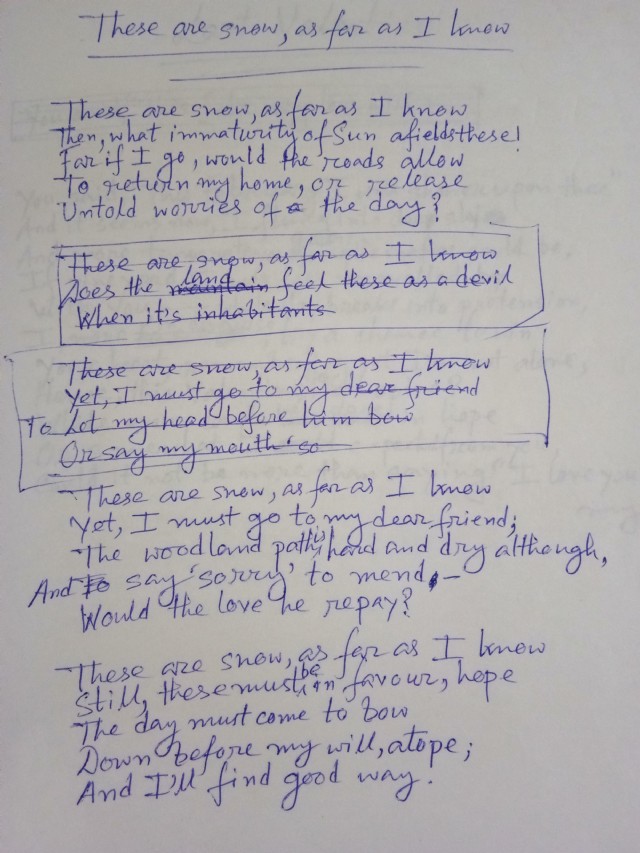 These are snow, as far as I know
These are snow, as far as I know
Then, what immaturity of Sun afields these!
Far if I go, would the roads allow
To return my home, or release
Untold worries of the day?
These are snow, as far as I know
Does the mountain land feel these as a devil
When it's inhabitants
These are snow, as far as I know
Yet, I must go to my dear friend
To Let my head before him bow
Or say my mouth 'so
These are snow, as far as I know
Yet, I must go to my dear friend;
The woodland path's hard and dry although,
And To say 'sorry' to mend, –
Would the love he repay?
These are snow, as far as I know
Still, these must be in favour, hope
The day must come to bow
Down before my will, atope;
And I'll find good way.